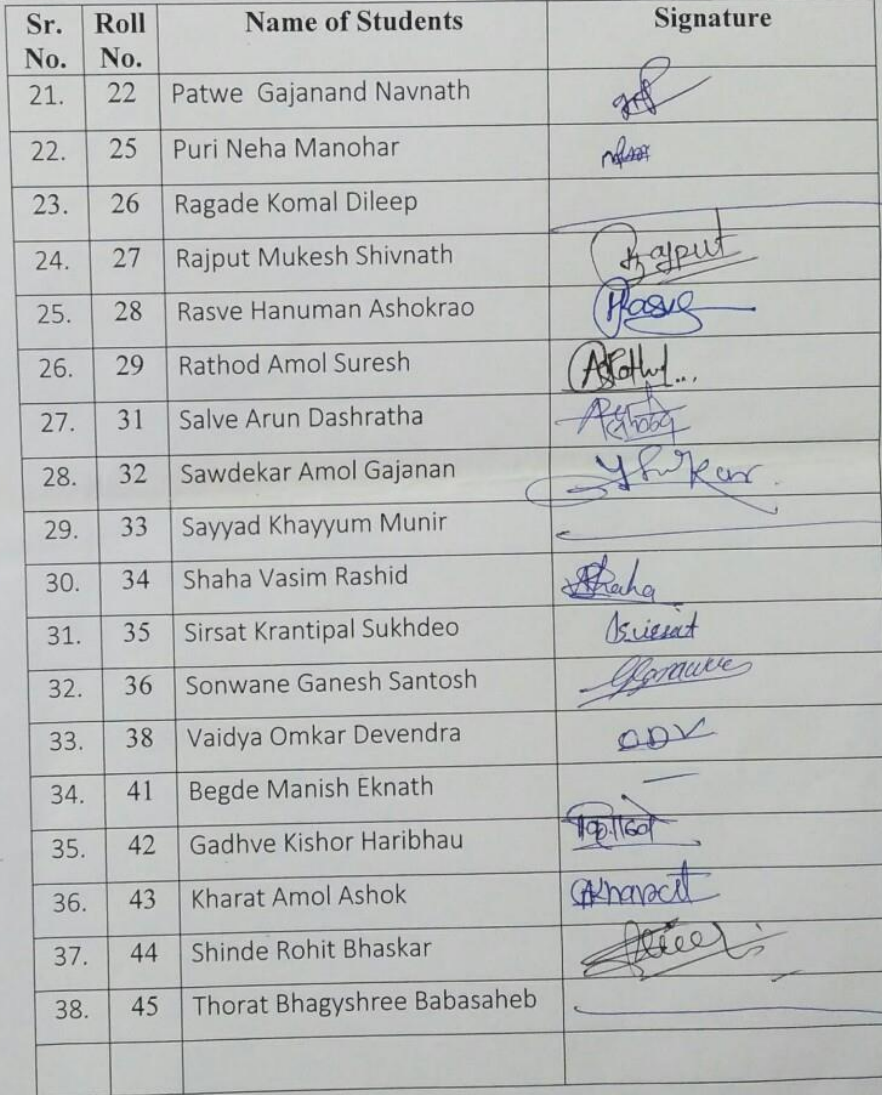 Sr. No. Roll No. Name of Students Signature
21. 22 Patwe Gajanand Navnath
22. 25 Puri Neha Manohar
23. 26 Ragade Komal Dileep
24. 27 Rajput Mukesh Shivnath Rajput
25. 28 Rasve Hanuman Ashokrao Rasve
26. 29 Rathod Amol Suresh
27. 31 Salve Arun Dashratha
28. 32 Sawdekar Amol Gajanan
29. 33 Sayyad Khayyum Munir
30. 34 Shaha Vasim Rashid Shaha
31. 35 Sirsat Krantipal Sukhdeo
32. 36 Sonwane Ganesh Santosh
33. 38 Vaidya Omkar Devendra ODV
34. 41 Begde Manish Eknath
35. 42 Gadhve Kishor Haribhau
36. 43 Kharat Amol Ashok AKharat
37. 44 Shinde Rohit Bhaskar
38. 45 Thorat Bhagyshree Babasaheb